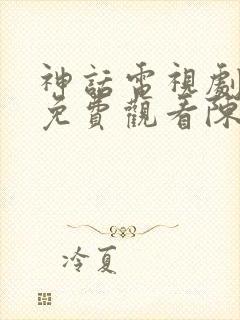 神話電視劇
免費觀看陳
冷夏